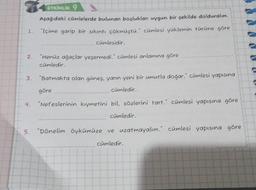 ETKİNLİK 9
Aşağıdaki cümlelerde bulunan boşlukları uygun bir şekilde dolduralım.
1. "İçime garip bir sıkıntı çökmüştü." cümlesi yüklemin türüne göre
cümlesidir.
2. "Henüz ağaçlar yeşermedi." cümlesi anlamına göre
cümledir.
3. "Batmakta olan güneş, yarın yeni bir umutla doğar." cümlesi yapısına
göre cümledir.
4. "Nefeslerinin kıymetini bil, sözlerini tart." cümlesi yapısına göre
cümledir.
5. "Dönelim öykümüze ve uzatmayalım." cümlesi yapısına göre
cümledir.